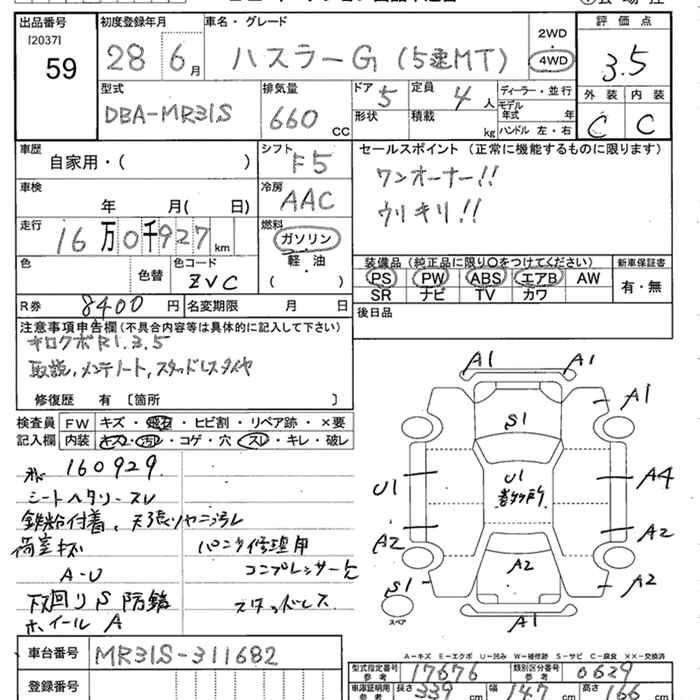 出品番号
[2037]
59
初度登録年月
28 6月
車名・グレード
ハスラーG (5速MT)
2WD
4WD
評価点
3.5
型式
DBA-MR31S
排気量
660 CC
ドア 5
形状
定員 4 人
積載 kg
ディーラー・並行
モデル年式 年
ハンドル 左・右
外装 内装
C C
車歴
自家用・( )
シフト
F5
セールスポイント (正常に機能するものに限ります)
ワンオーナー!!
ウリキリ!!
車検
年 月( 日)
冷房
AAC
走行
16万0千927km
燃料
ガソリン
軽・油
( )
色
色替
色コード
ZVC
装備品 (純正品に限り○をつけてください)
PS PW ABS エアB AW
SR ナビ TV カワ
新車保証書
有・無
R券 8400 円
名変期限 月 日
後日品
注意事項申告欄 (不具合内容等は具体的に記入して下さい)
キロクボR1.3.5
取説,メンテノート,スタッドレスタイヤ
修復歴 有 〔箇所 〕
検査員
記入欄
FW キズ・飛石・ヒビ割・リペア跡・×要
内装 キズ・汚れ・コゲ・穴・スレ・キレ・破レ
160929
シートヘタリ・スレ
鉄粉付着、天張リヤニ汚レ
荷室キズ
A-U
下回りS防錆
ホイールA
パンク修理用
コンプレッサー欠
スタッドレス
A1 A1
A1
S1
U1
U1
多数所
A4
A2
A2
A2
A2
S1
スペア
A1
A-キズ E-エクボ U-凹み W-補修跡 S-サビ C-腐食 ××-交換済
車台番号
MR31S-311682
登録番号
型式指定番号
参考
17676
類別区分番号
参考
0629
車庫証明用
参考
長さ 339 cm
幅 147 cm
高さ 166 cm